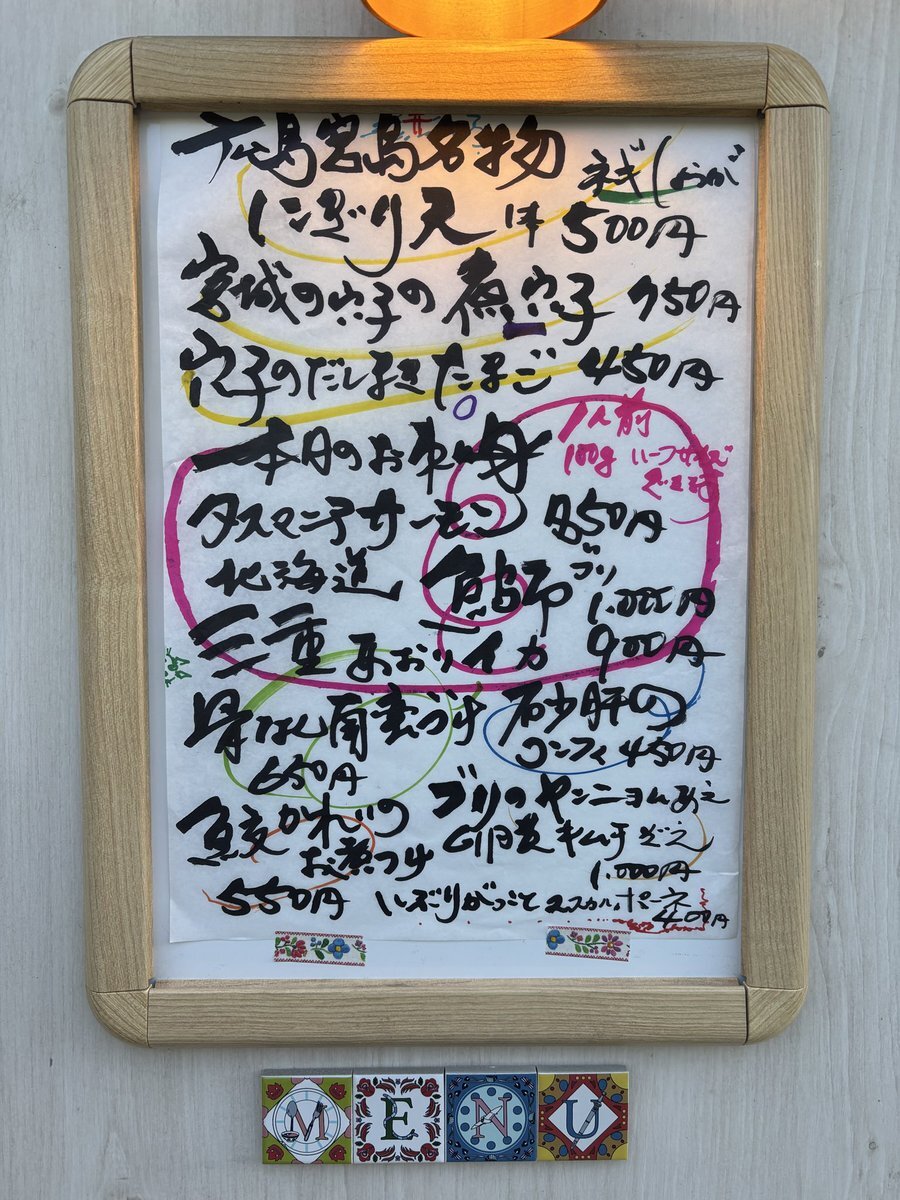 広島宮島名物
ネギしょうが
にぎり天 1本 500円
宮城の穴子の煮穴子 750円
穴子のだしまきたまご 450円
本日のお刺身
1人前
100g ハーフサイズ
タスマニアサーモン 850円
北海道 鰤 ブリ 1.000円
三重 あおりイカ 900円
骨なし南蛮づけ 650円
砂肝の
コンフィ 450円
鮫かれいの
お煮つけ
550円
ブリのヤンニョムあえ
卵黄キムチぞえ
1.000円
いぶりがっことマスカルポーネ
400円
MENU